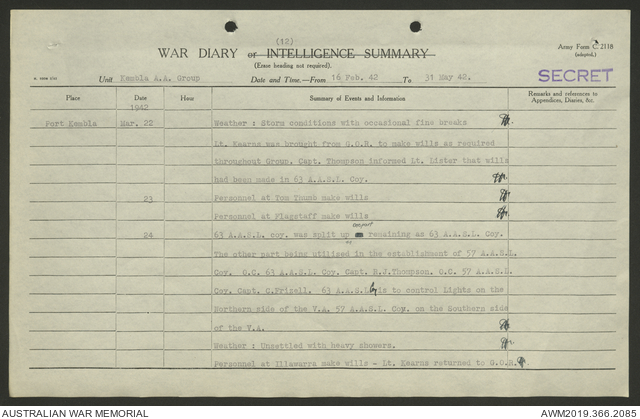 (12)
WAR DIARY or INTELLIGENCE SUMMARY
(Erase heading not required).
Army Form C. 2118
(adapted.)
Unit Kembla A.A. Group
Date and Time.—From 16 Feb. 42 To 31 May 42.
SECRET
Place Date Hour Summary of Events and Information Remarks and references to Appendices, Diaries, &c.
1942
Port Kembla Mar. 22 Weather : Storm conditions with occasional fine breaks
Lt. Kearns was brought from G.O.R. to make wills as required
throughout Group. Capt. Thompson informed Lt. Lister that wills
had been made in 63 A.A.S.L. Coy.
23 Personnel at Tom Thumb make wills
Personnel at Flagstaff make wills
one part
24 63 A.A.S.L. coy. was split up remaining as 63 A.A.S.L. Coy.
The other part being utilised in the establishment of 57 A.A.S.L.
Coy. O.C. 63 A.A.S.L. Coy. Capt. R.J.Thompson. O.C. 57 A.A.S.L.
Coy. Capt. C.Frizell. 63 A.A.S.L Coy is to control Lights on the
Northern side of the V.A. 57 A.A.S.L. Coy. on the Southern side
of the V.A.
Weather : Unsettled with heavy showers.
Personnel at Illawarra make wills - Lt. Kearns returned to G.O.R.
AUSTRALIAN WAR MEMORIAL
AWM2019.366.2085